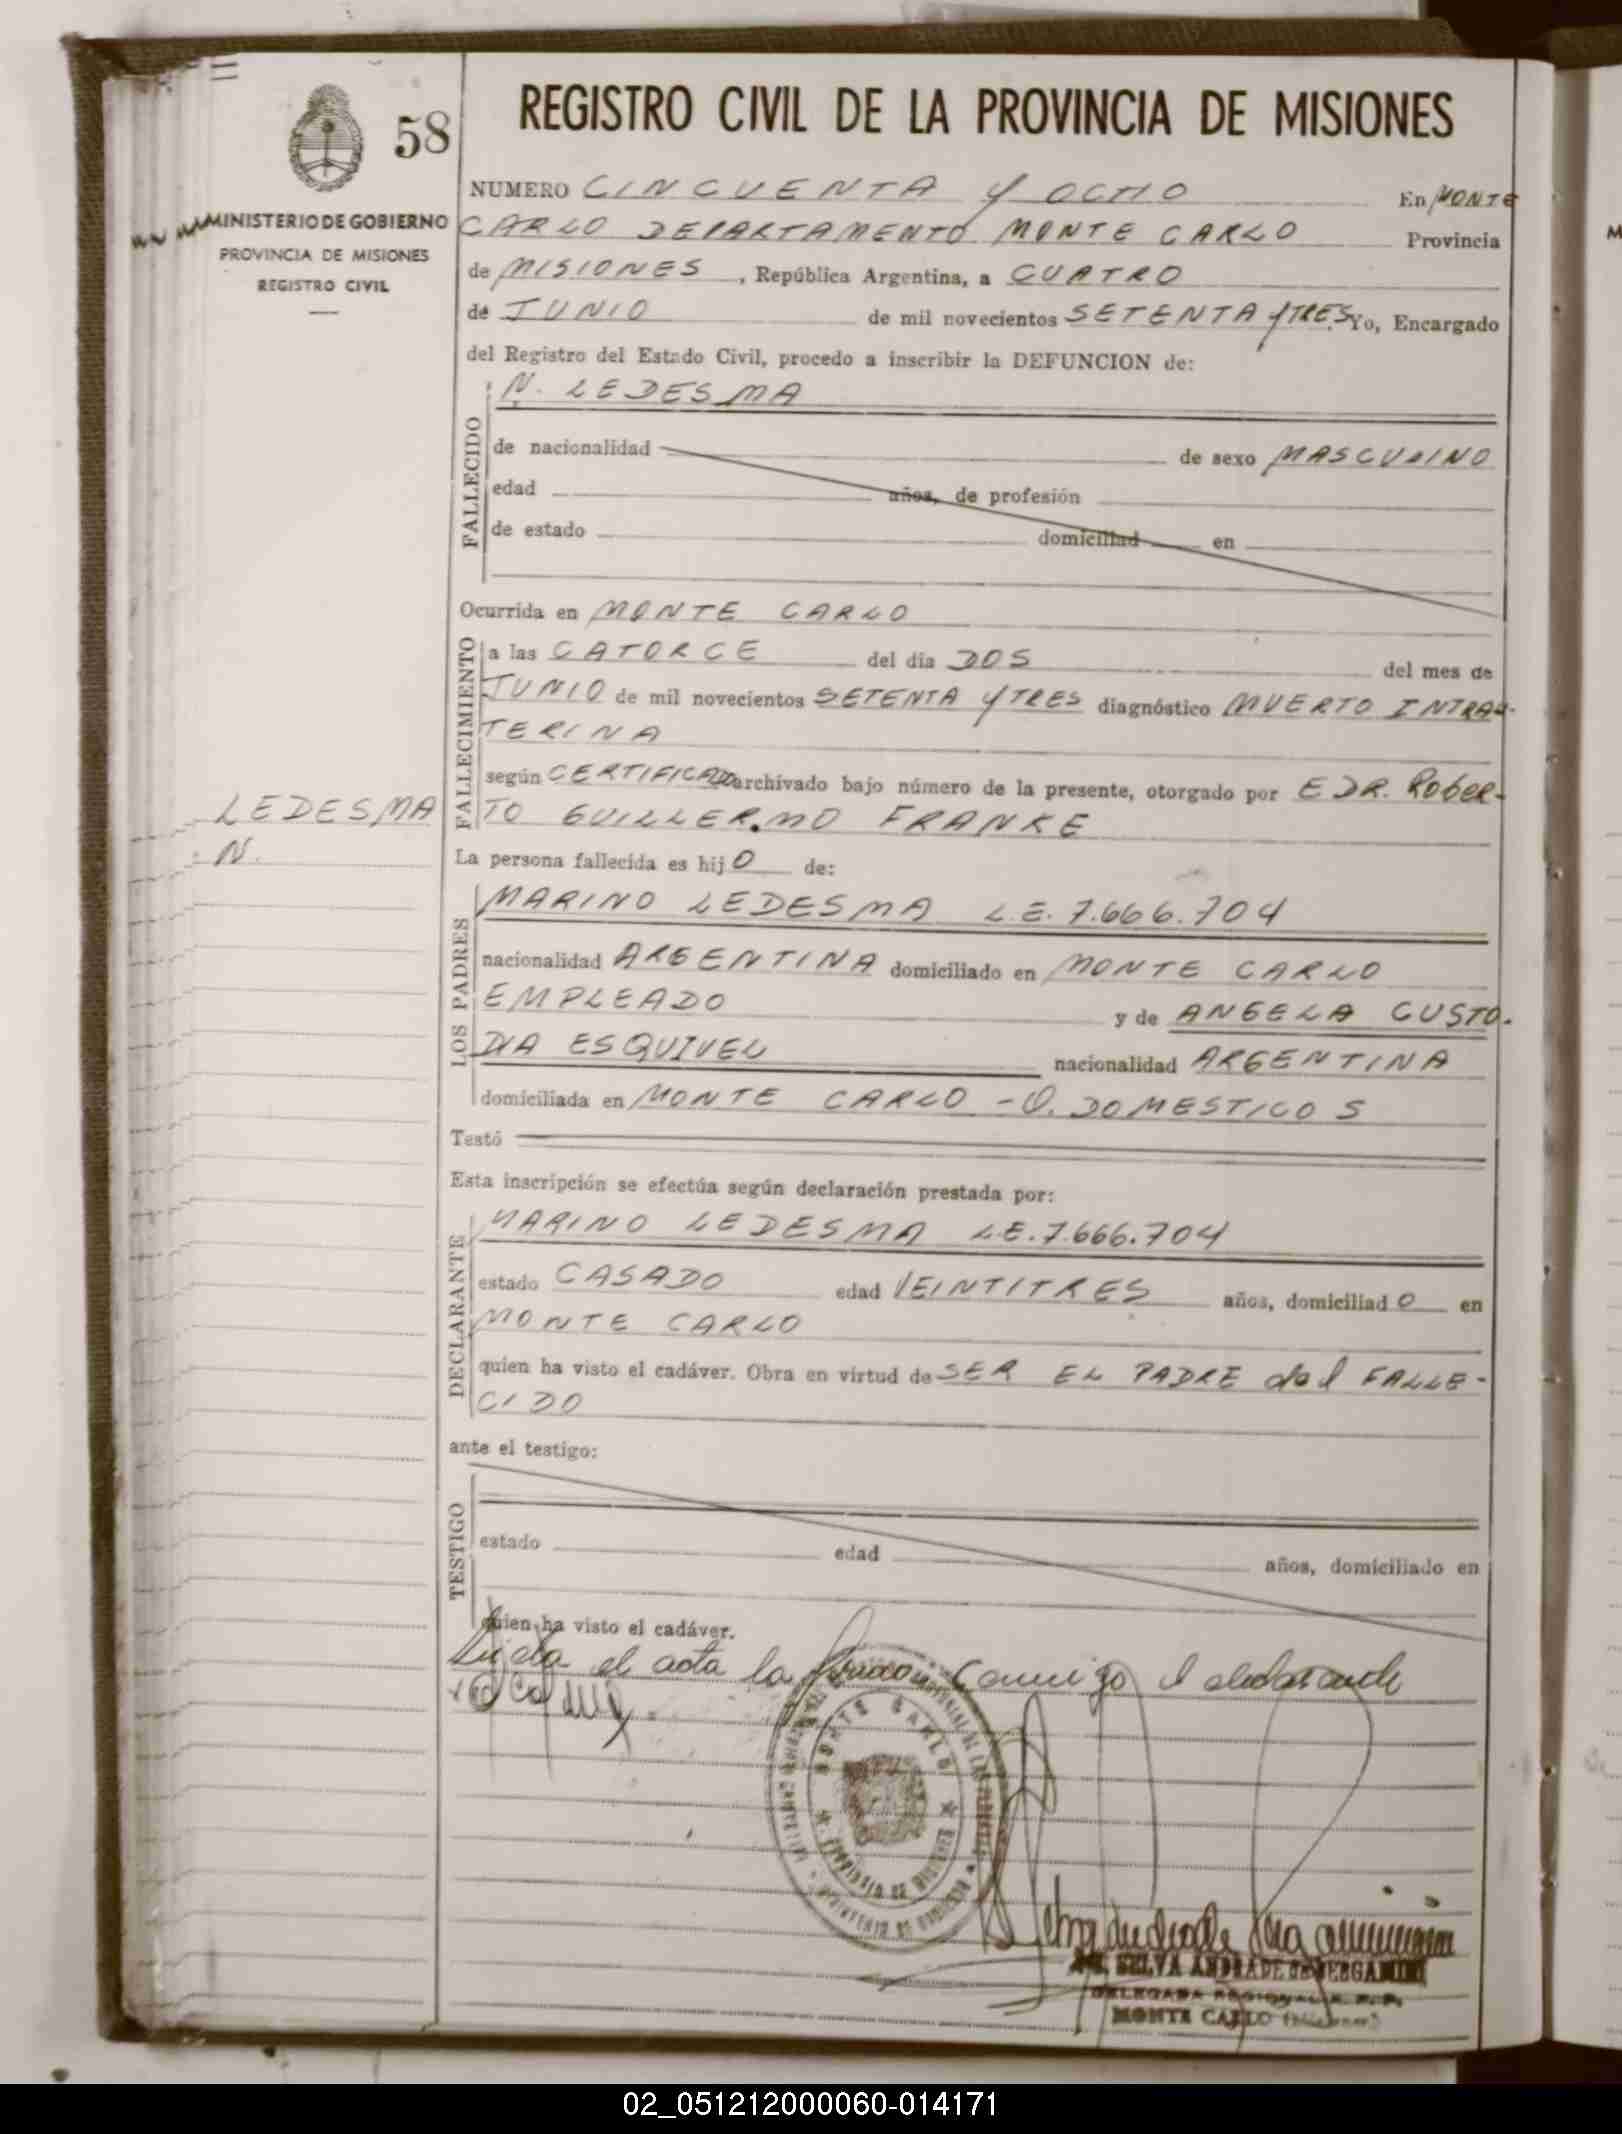 58
REGISTRO CIVIL DE LA PROVINCIA DE MISIONES
MINISTERIO DE GOBIERNO
PROVINCIA DE MISIONES
REGISTRO CIVIL
NUMERO CINCUENTA Y OCHO En MONTE
CARLO DEPARTAMENTO MONTE CARLO Provincia
de MISIONES, República Argentina, a CUATRO
de JUNIO de mil novecientos SETENTA Y TRES. Yo, Encargado
del Registro del Estado Civil, procedo a inscribir la DEFUNCION de:
N. LEDESMA
FALLECIDO
de nacionalidad de sexo MASCULINO
edad años, de profesión
de estado domiciliad en
Ocurrida en MONTE CARLO
FALLECIMIENTO
a las CATORCE del día DOS del mes de
JUNIO de mil novecientos SETENTA Y TRES diagnóstico MUERTO INTRAU-
TERINA
según CERTIFICADO archivado bajo número de la presente, otorgado por E DR. ROBER-
TO GUILLERMO FRANKE
LEDESMA
N.
La persona fallecida es hijO de:
LOS PADRES
MARINO LEDESMA L.E. 7.666.704
nacionalidad ARGENTINA domiciliado en MONTE CARLO
EMPLEADO y de ANGELA CUSTO-
DIA ESQUIVEL nacionalidad ARGENTINA
domiciliada en MONTE CARLO - Q. DOMESTICOS
Testó
Esta inscripción se efectúa según declaración prestada por:
DECLARANTE
MARINO LEDESMA L.E. 7.666.704
estado CASADO edad VEINTITRES años, domiciliadO en
MONTE CARLO
quien ha visto el cadáver. Obra en virtud de SER EL PADRE del FALLE-
CIDO
ante el testigo:
TESTIGO
estado edad años, domiciliado en
quien ha visto el cadáver.
el acta la conmigo el declarante
MONTE CARLO
PROVINCIA DE MISIONES
SELVA ANDRADE de BERGAMINI
DELEGADA REGIONAL
MONTE CARLO (Misiones)
02_051212000060-014171